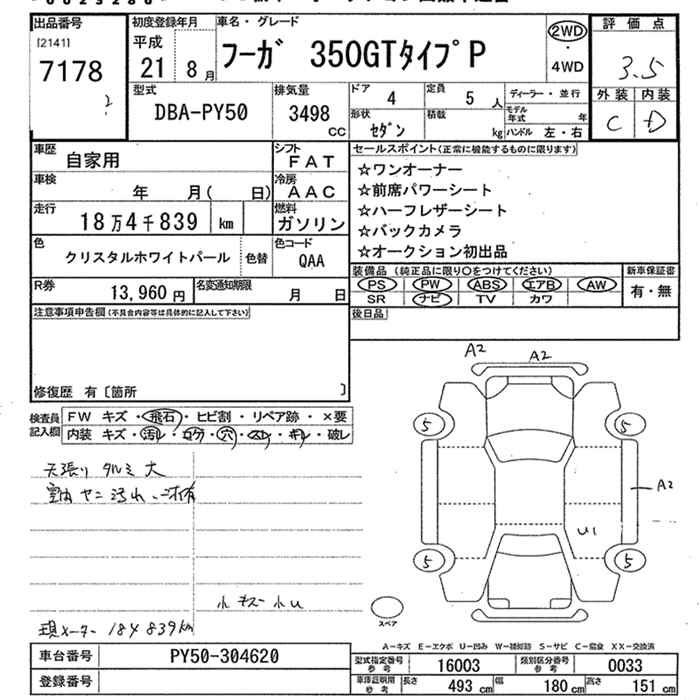 出品番号 初度登録年月 車名・グレード 評価点
[2141] 平成 フーガ 350GTタイプP 2WD
7178 21 8月 4WD 3.5
型式 排気量 ドア 4 定員 5人 ディーラー・並行 外装 内装
DBA-PY50 3498 CC 形状 セダン 積載 kg モデル年式 年 C D
ハンドル 左・右
車歴 自家用 シフト FAT セールスポイント(正常に機能するものに限ります)
車検 年 月( 日) 冷房 AAC ☆ワンオーナー
走行 18万4千839 km 燃料 ガソリン ☆前席パワーシート
☆ハーフレザーシート
色 クリスタルホワイトパール 色替 色コード QAA ☆バックカメラ
☆オークション初出品
R券 13,960円 名変通知期限 月 日 装備品(純正品に限り〇をつけてください) 新車保証書
PS PW ABS エアB AW 有・無
SR ナビ TV カワ
注意事項申告欄(不具合内容等は具体的に記入して下さい) 後日品
修復歴 有〔箇所 〕
A2 A2
検査員記入欄 FW キズ・飛石・ヒビ割・リペア跡・×要
内装 キズ・汚レ・コゲ・穴・スレ・キレ・破レ
5 5
天張り タルミ 大
室内 ヤニ 汚れ
A2
U1
5 5
小キズ 小U
スペア
現メーター 184839km
A-キズ E-エクボ U-凹み W-補修跡 S-サビ C-腐食 XX-交換済
車台番号 PY50-304620 型式指定番号参考 16003 類別区分番号参考 0033
登録番号 車庫証明用参考 長さ 493cm 幅 180cm 高さ 151cm